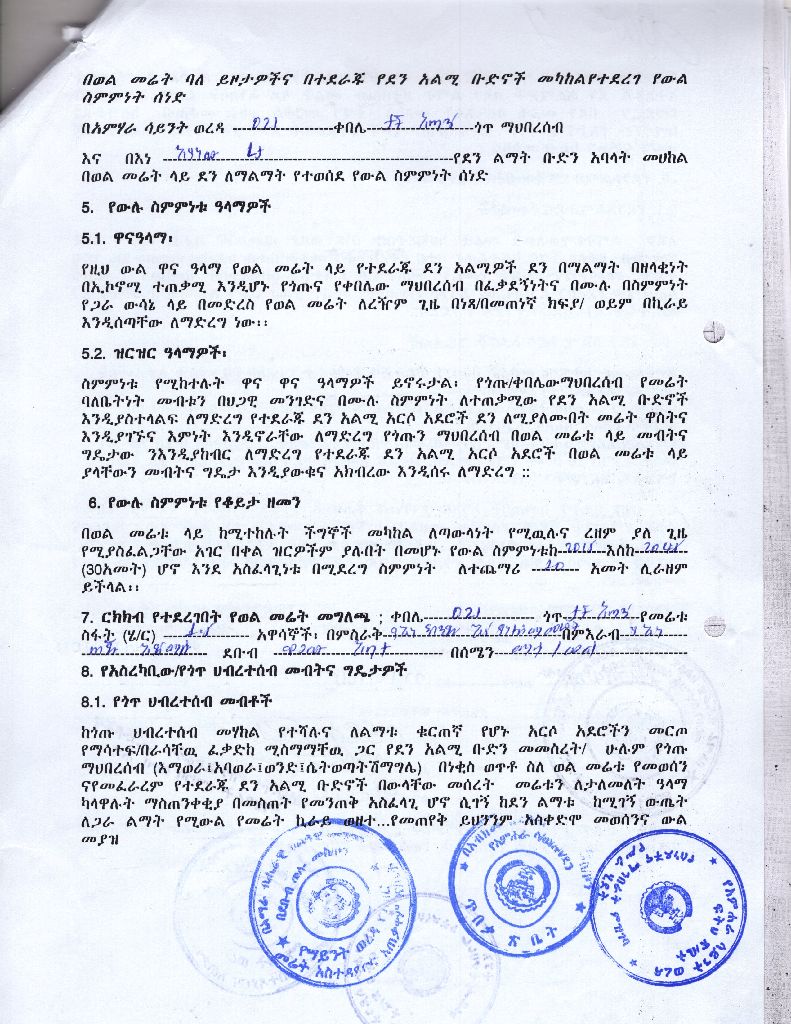 በወል መሬት ባለ ይዞታዎችና በተደራጁ የደን አልሚ ቡድኖች መካከልየተደረገ የውል
ስምምነት ሰነድ
በአምሃራ ሳይንት ወረዳ 021 ቀበሌ ጎጥ ማህበረሰብ
እና በእነ የደን ልማት ቡድን አባላት መሀከል
በወል መሬት ላይ ደን ለማልማት የተወሰደ የውል ስምምነት ሰነድ
5. የውሉ ስምምነቱ ዓላማዎች
5.1. ዋናዓላማ፡
የዚህ ውል ዋና ዓላማ የወል መሬት ላይ የተደራጁ ደን አልሚዎች ደን በማልማት በዘላቂነት
በኢኮኖሚ ተጠቃሚ እንዲሆኑ የጎጡና የቀበሌው ማህበረሰብ በፈቃደኝነትና በሙሉ በስምምነት
የጋራ ውሳኔ ላይ በመድረስ የወል መሬት ለረዥም ጊዜ በነጻ/በመጠነኛ ክፍያ/ ወይም በኪራይ
እንዲሰጣቸው ለማድረግ ነው፡፡
5.2. ዝርዝር ዓላማዎች፡
ስምምነቱ የሚከተሉት ዋና ዋና ዓላማዎች ይኖሩታል፡ የጎጡ/ቀበሌውማህበረሰብ የመሬት
ባለቤትነት መብቱን በህጋዊ መንገድና በሙሉ ስምምነት ለተጠቃሚው የደን አልሚ ቡድኖች
እንዲያስተላልፍ ለማድረግ የተደራጁ ደን አልሚ አርሶ አደሮች ደን ለሚያለሙበት መሬት ዋስትና
እንዲያገኙና እምነት እንዲኖራቸው ለማድረግ የጎጡን ማህበረሰብ በወል መሬቱ ላይ መብትና
ግዴታው ንእንዲያከብር ለማድረግ የተደራጁ ደን አልሚ አርሶ አደሮች በወል መሬቱ ላይ
ያላቸውን መብትና ግዴታ እንዲያውቁና አክብረው እንዲሰሩ ለማድረግ ::
6. የውሉ ስምምነቱ የቆይታ ዘመን
በወል መሬቱ ላይ ከሚተከሉት ችግኞች መካከል ለጣውላነት የሚዉሉና ረዘም ያለ ጊዜ
የሚያስፈልጋቸው አገር በቀል ዝርዎችም ያሉበት በመሆኑ የውል ስምምነቱከ እስከ
(30አመት) ሆኖ እንደ አስፈላጊነቱ በሚደረግ ስምምነት ለተጨማሪ አመት ሊራዘም
ይችላል፡፡
7. ርክክብ የተደረገበት የወል መሬት መግለጫ ; ቀበሌ 021 ጎጥ የመሬቱ
ስፋት (ሄ/ር) አዋሳኞች፡ በምስራቅ በምእራብ
ደቡብ በሰሜን
8. የአስረካቢው/የጎጥ ሀብረተሰብ መብትና ግዴታዎች
8.1. የጎጥ ህብረተሰብ መብቶች
ከጎጡ ህብረተሰብ መሃከል የተሻሉና ለልማቱ ቁርጠኛ የሆኑ አርሶ አደሮችን መርጦ
የማሳተፍ/በራሳቸዉ ፈቃድከ ሚስማማቸዉ ጋር የደን አልሚ ቡድን መመስረት/ ሁሉም የጎጡ
ማህበረሰብ (እማወራ፤አባወራ፤ወንድ፤ሴትወጣትሽማግሌ) በነቂስ ወጥቶ ስለ ወል መሬቱ የመወሰን
ናየመፈራረም የተደራጁ ደን አልሚ ቡድኖች በውላቸው መሰረት መሬቱን ለታለመለት ዓላማ
ካላዋሉት ማስጠንቀቂያ በመስጠት የመንጠቅ አስፈላጊ ሆኖ ሲገኝ ከደን ልማቱ ከሚገኝ ውጤት
ለጋራ ልማት የሚውል የመሬት ኪራይ ወዘተ...የመጠየቅ ይህንንም አስቀድሞ መወሰንና ውል
መያዝ